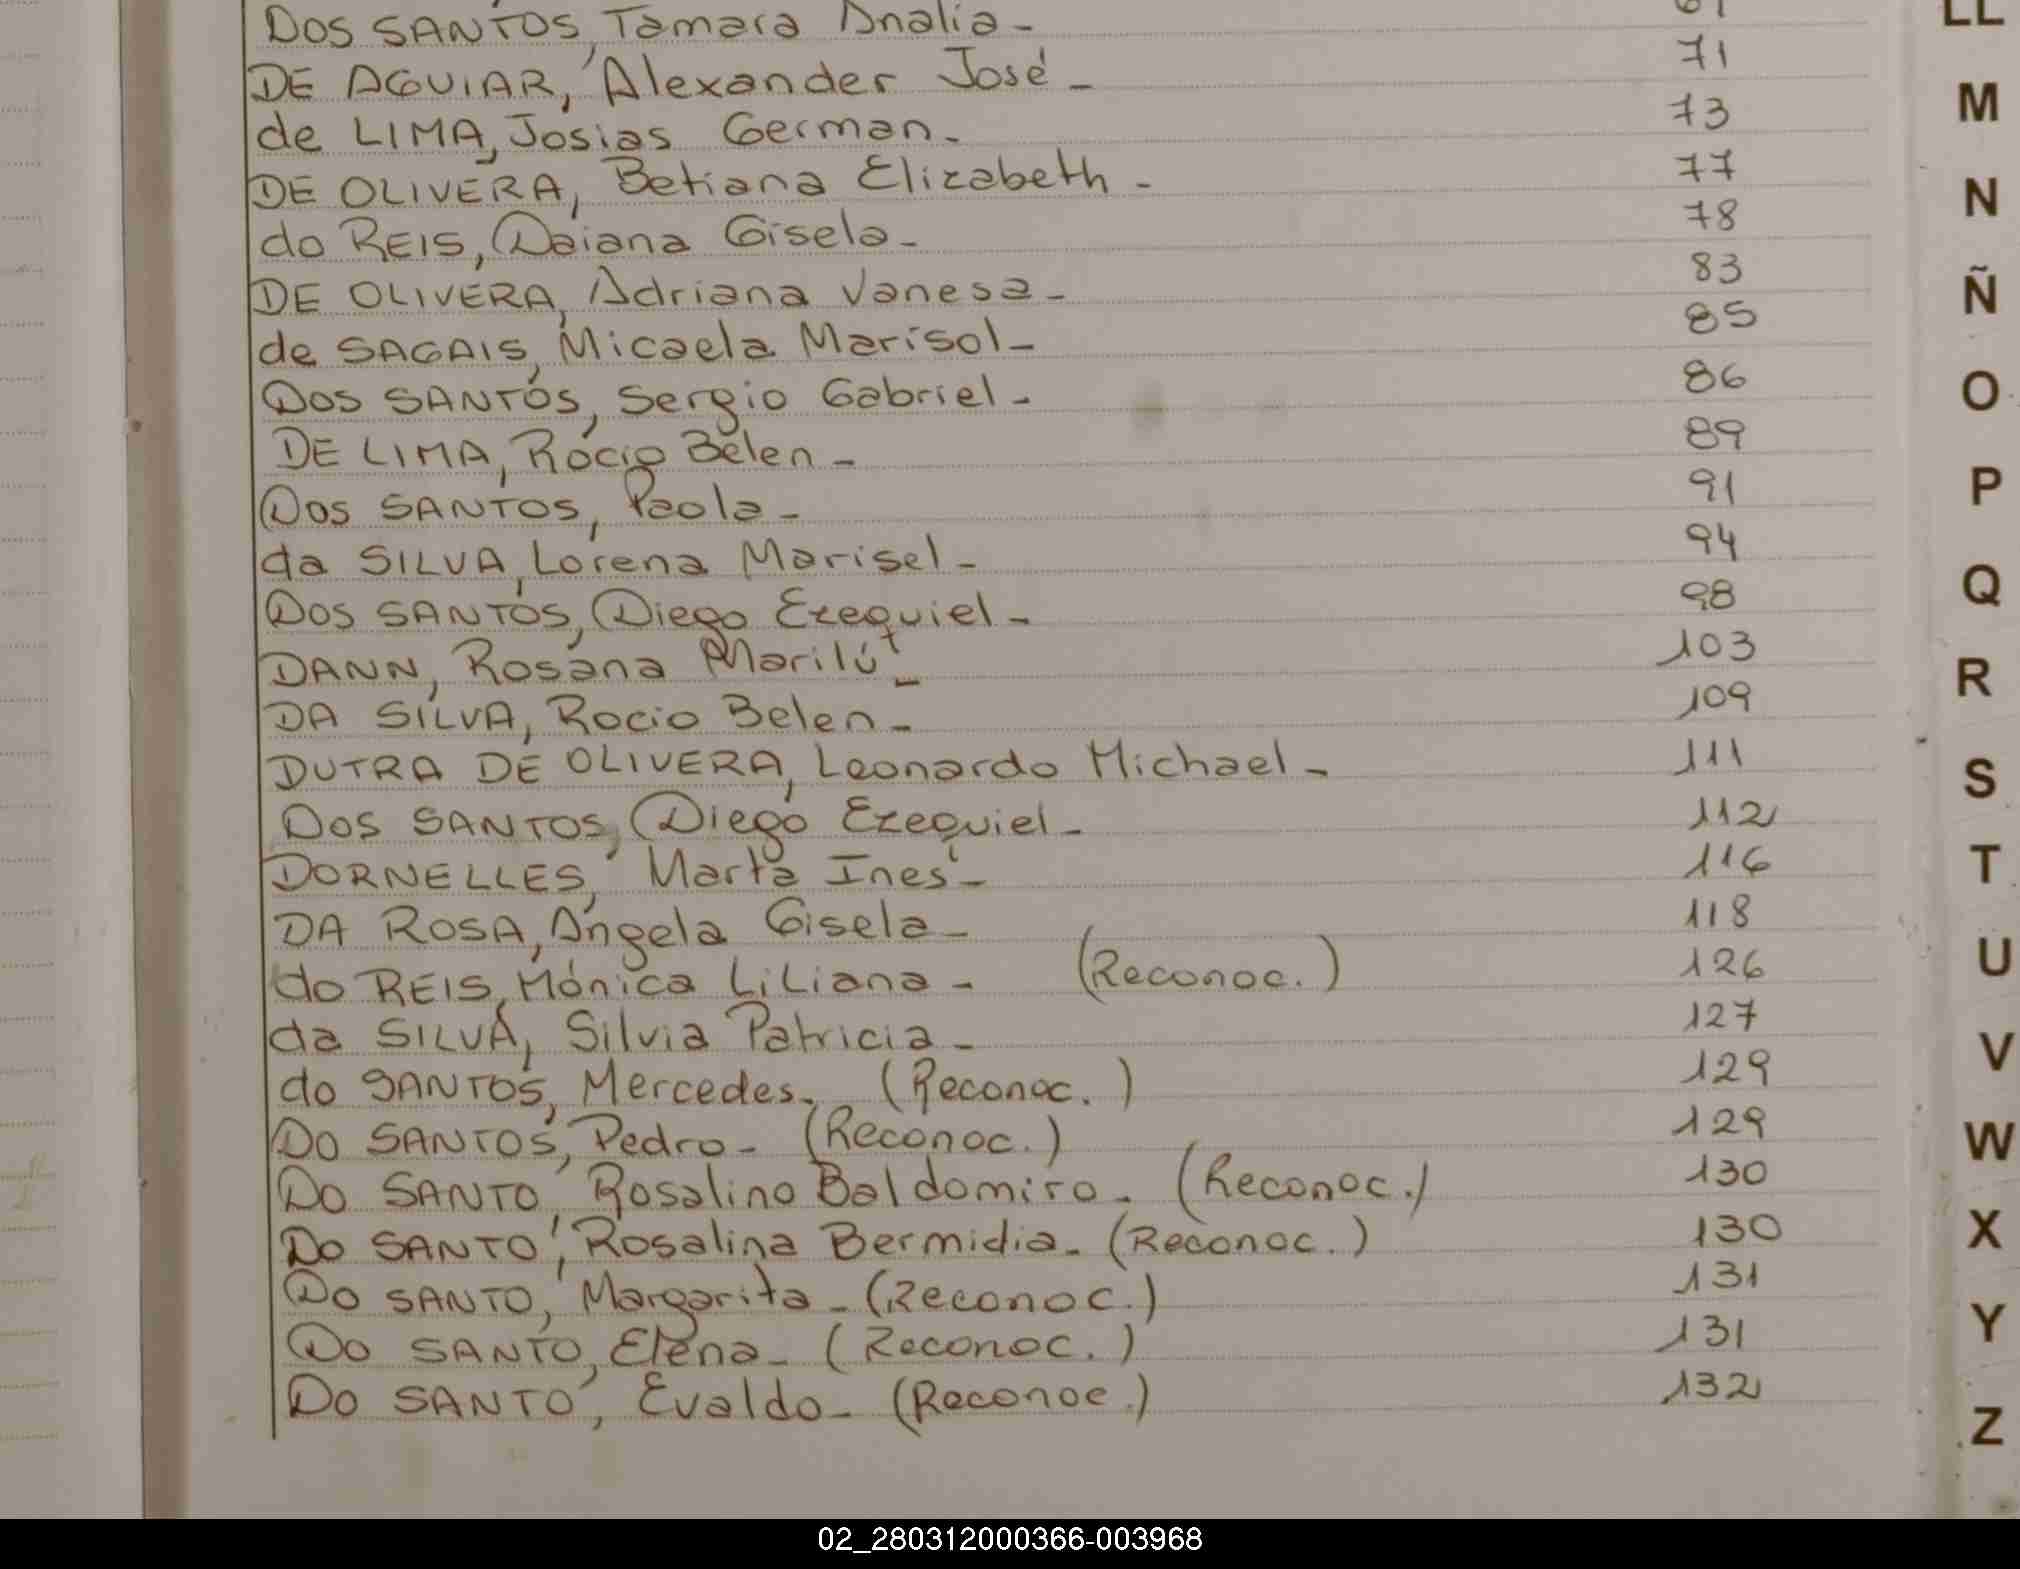 DOS SANTOS, Tamara Analia - 
DE AGUIAR, Alexander José - 71
de LIMA, Josias German - 73
DE OLIVERA, Betiana Elizabeth - 77
do REIS, Daiana Gisela - 78
DE OLIVERA, Adriana Vanesa - 83
de SAGAIS, Micaela Marisol - 85
DOS SANTOS, Sergio Gabriel - 86
DE LIMA, Rocio Belen - 89
DOS SANTOS, Paola - 91
da SILVA, Lorena Marisel - 94
DOS SANTOS, Diego Ezequiel - 98
DANN, Rosana Marilú - 103
DA SILVA, Rocio Belen - 109
DUTRA DE OLIVERA, Leonardo Michael - 111
DOS SANTOS, Diego Ezequiel - 112
DORNELLES, Marta Inés - 116
DA ROSA, Angela Gisela - 118
do REIS, Mónica Liliana - (Reconoc.) 126
da SILVA, Silvia Patricia - 127
do SANTOS, Mercedes. (Reconoc.) 129
DO SANTOS, Pedro - (Reconoc.) 129
DO SANTO, Rosalino Baldomiro - (Reconoc.) 130
DO SANTO, Rosalina Bermidia - (Reconoc.) 130
DO SANTO, Margarita - (Reconoc.) 131
DO SANTO, Elena - (Reconoc.) 131
DO SANTO, Evaldo - (Reconoc.) 132
LL
M
N
Ñ
O
P
Q
R
S
T
U
V
W
X
Y
Z
02_280312000366-003968